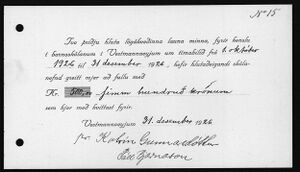 No 15
Tvo þriðju hluta fögboðinna launa minna, fyrir kenslu
í barnaskólanum í Vestmannaeyjum um tímabilið frá 1. október
1926 til 31 desember 1926, hefir hlutaðeigandi skóla-
nefnd greitt mjer að fullu með
Kr. 500,00 fimm hundruð krónum
sem hjer með kvittast fyrir.
Vestmannaeyjum 31. desember 1926
pr. Katrín Gunnarsdóttir
Páll Bjarnason